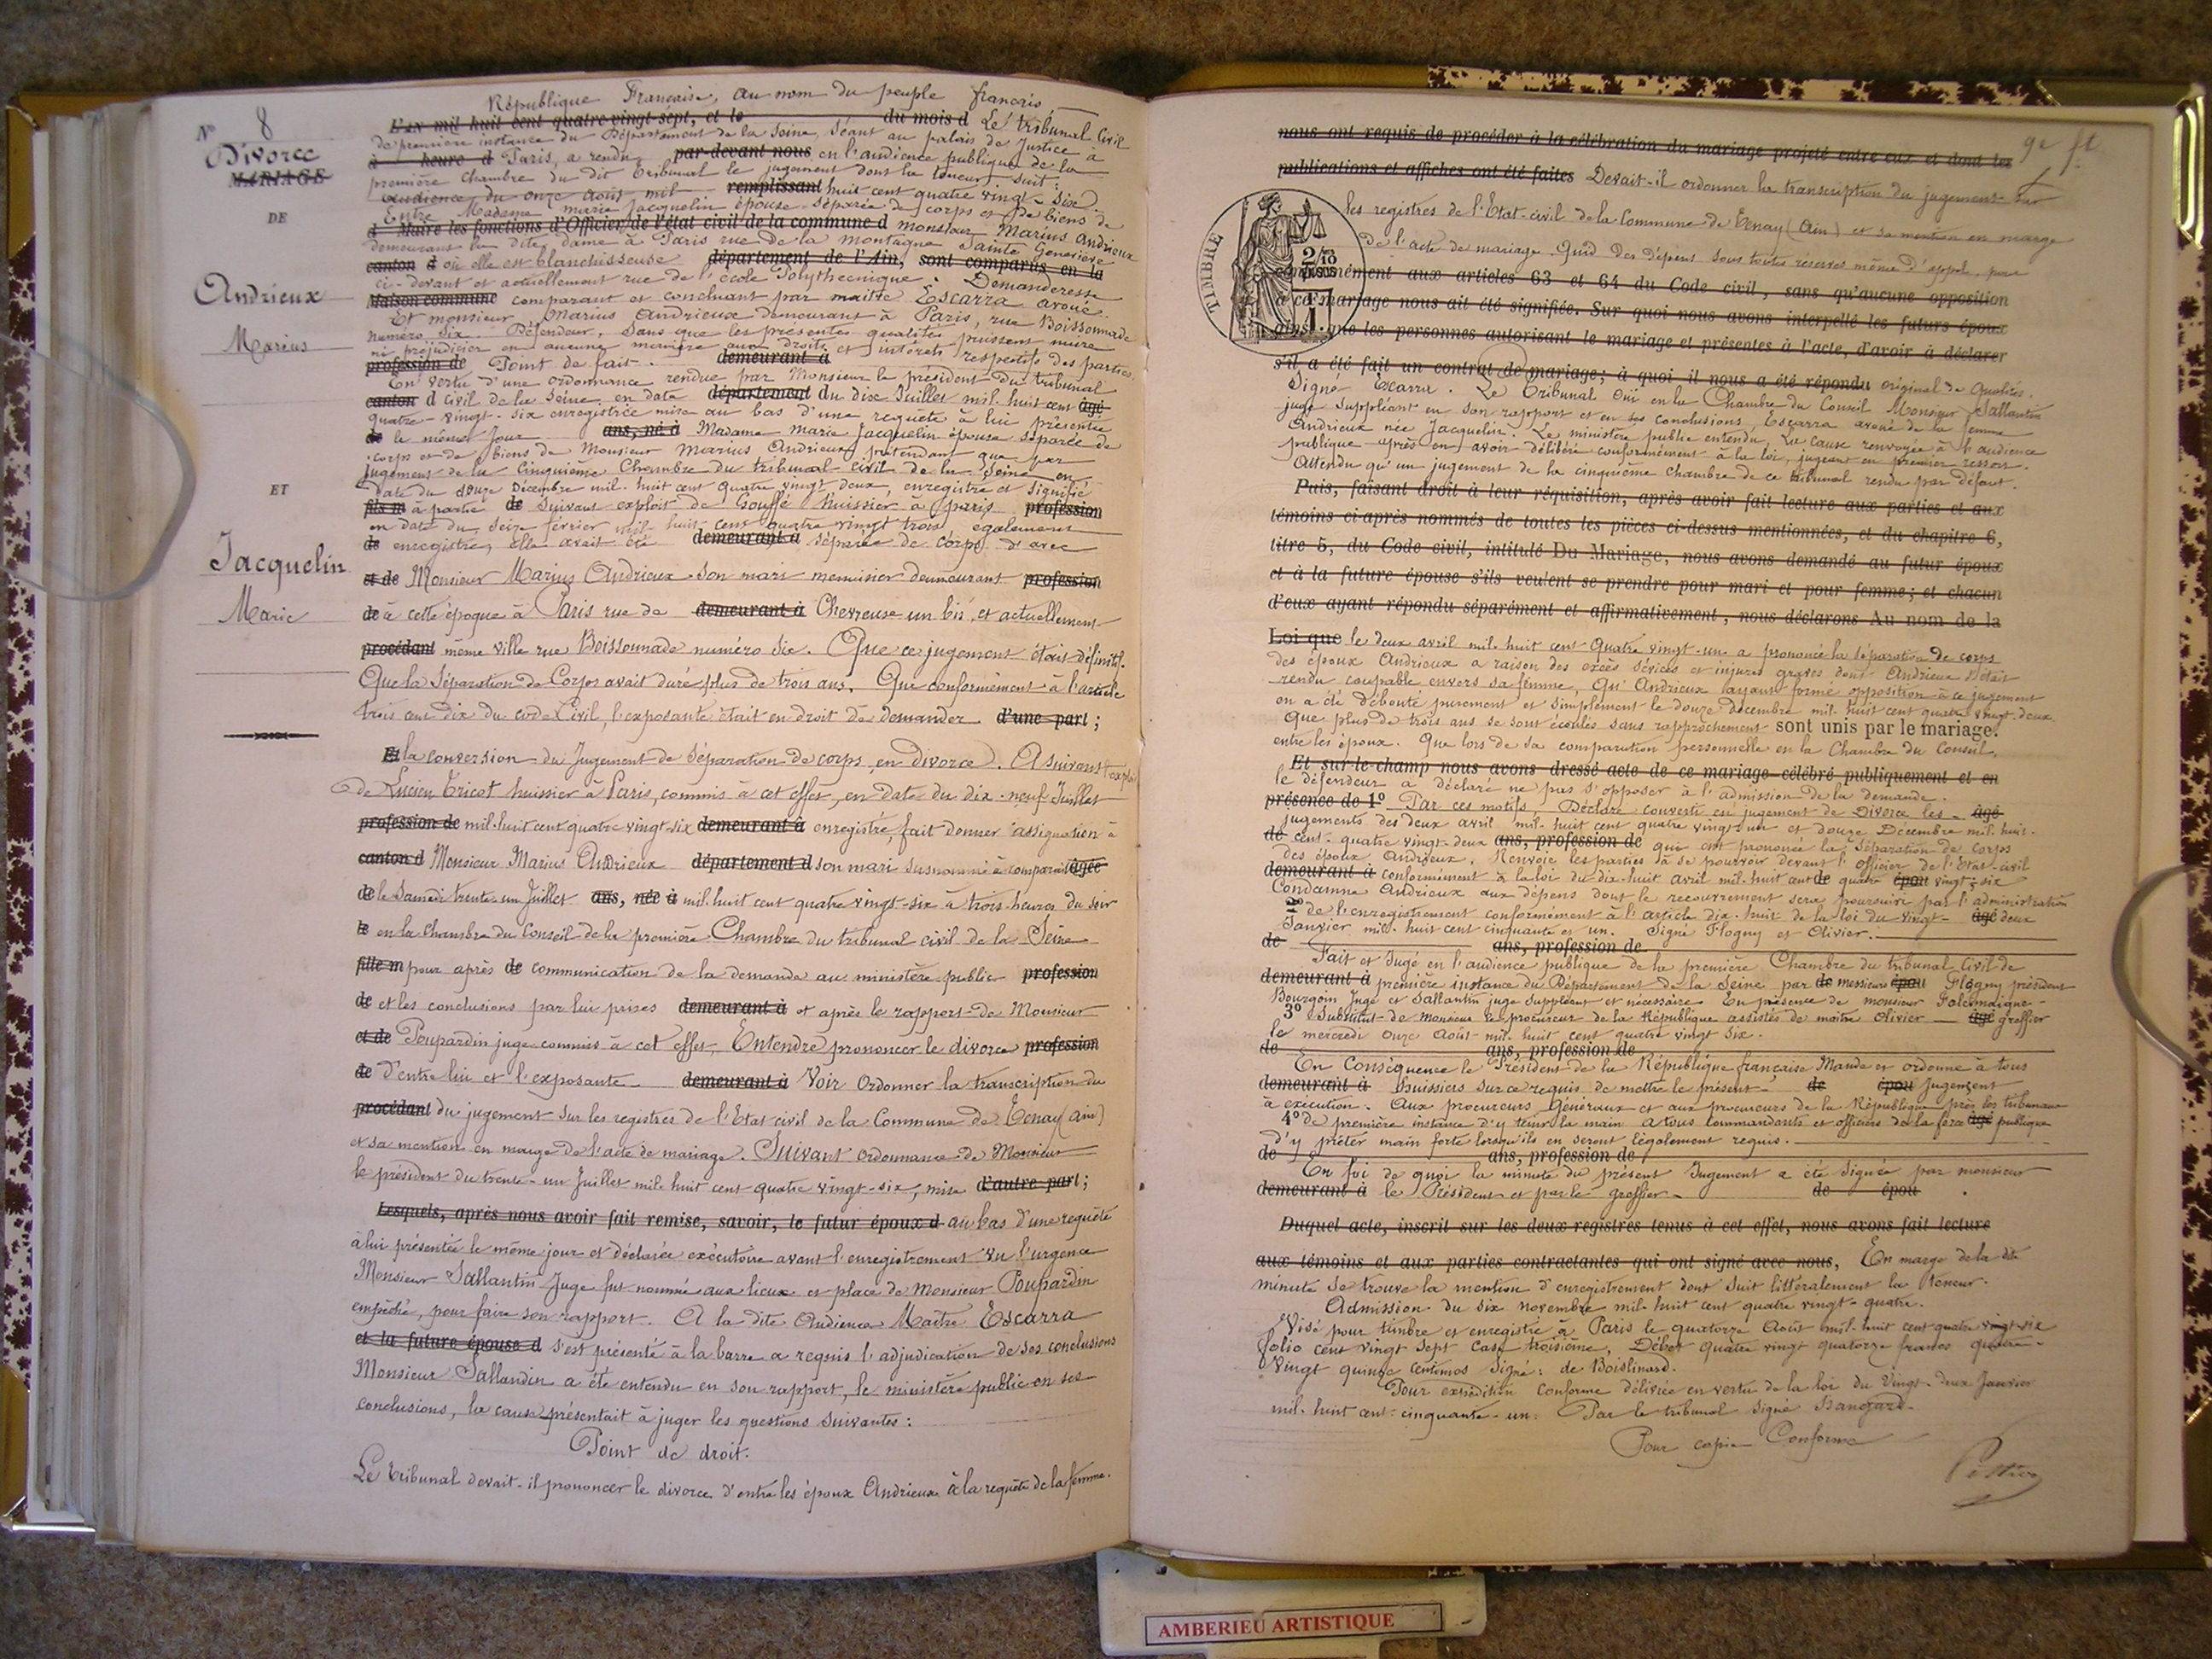 N° 8
Divorce
MARIAGE
DE
Andrieux
Marius
ET
Jacquelin
Marie
République Française, au nom du peuple français
L'an mil huit cent quatre-vingt-sept, et le du mois d Le tribunal Civil
de première instance du Département de la Seine, séant au palais de Justice a
à heure d Paris, a rendu par-devant nous en l'audience publique de la
première chambre du dit tribunal le jugement dont la teneur suit:
Audience du onze août mil remplissant huit cent quatre vingt-six
Entre Madame marie Jacquelin épouse séparée de corps et de biens de
d' Maire les fonctions d'Officier de l'état civil de la commune d monsieur Marius Andrieux
demeurant la dite dame à Paris rue de la montagne Sainte Geneviève
canton d où elle est blanchisseuse département de l'Ain, sont comparus en la
ci-devant et actuellement rue de l'école Polythecnique. Demanderesse
Maison commune comparant et concluant par maître Escarra avoué.
Et monsieur Marius Andrieux demeurant à Paris, rue Boissonnade
numéro Six. Défendeur. Sans que les présentes qualités puissent nuire
ni préjudicier en aucune manière aux droits et intérêts respectifs des parties.
profession de Point de fait. demeurant à
En vertu d'une ordonnance rendue par Monsieur le président du tribunal
canton d civil de la Seine en date département du dix Juillet mil-huit cent âgé
quatre-vingt-six enregistrée mise au bas d'une requête à lui présentée
de le même jour ans, né à Madame marie Jacquelin épouse séparée de
corps et de biens de Monsieur Marius Andrieux prétendant que par
jugement de la cinquième Chambre du tribunal civil de la Seine en
date du douze Décembre mil-huit cent quatre vingt deux, enregistré et signifié
fils m à partie de suivant exploit de Gouffé huissier à paris profession
en date du seize février mil-huit-cent quatre vingt trois, également
de enregistré, elle avait été demeurant à séparée de corps d'avec
et de Monsieur Marius Andrieux son mari menuisier demeurant profession
de à cette époque à Paris rue de demeurant à Chevreuse un bis, et actuellement
procédant même ville rue Boissonnade numéro six. Que ce jugement était définitif.
Que la Séparation de Corps avait duré plus de trois ans. Que conformément à l'article
trois cent dix du code Civil, l'exposante était en droit de demander d'une part;
Et la conversion du Jugement de séparation de corps en divorce. A suivant exploit
de Lucien Tricot huissier à Paris, commis à cet effet, en date du dix-neuf Juillet
profession de mil-huit cent quatre vingt-six demeurant à enregistré, fait donner assignation à
canton d Monsieur Marius Andrieux département d son mari susnommé à comparait âgée
de le Samedi trente-un Juillet ans, née à mil-huit cent quatre vingt-six à trois heures du soir
le en la Chambre du Conseil de la première Chambre du tribunal civil de la Seine
fille m pour après de communication de la demande au ministère public profession
de et les conclusions par lui prises demeurant à et après le rapport de Monsieur
et de Poupardin juge commis à cet effet, Entendre prononcer le divorce profession
de D'entre lui et l'exposante demeurant à Voir Ordonner la transcription du
procédant du jugement sur les registres de l'Etat civil de la Commune de Tenay (ain)
et sa mention en marge de l'acte de mariage. Suivant ordonnance de Monsieur
le président du trente-un Juillet mil-huit cent quatre vingt-six, mise d'autre part;
Lesquels, après nous avoir fait remise, savoir, le futur époux d au bas d'une requête
à lui présentée le même jour et déclarée exécutoire avant l'enregistrement vu l'urgence
Monsieur Sallantin Juge fut nommé aux lieux et place de Monsieur Poupardin
empêché, pour faire son rapport. A la dite Audience Maître Escarra
et la future épouse d s'est présenté à la barre a requis l'adjudication de ses conclusions
Monsieur Sallandin a été entendu en son rapport, le ministère public en ses
conclusions, la cause présentait à juger les questions suivantes:
Point de droit.
Le tribunal devait-il prononcer le divorce d'entre les époux Andrieux à la requête de la femme.
9e ft
nous ont requis de procéder à la célébration du mariage projeté entre eux et dont les
publications et affiches ont été faites Devait-il ordonner la transcription du jugement sur
les registres de l'Etat-civil de la Commune de Tenay (Ain) et sa mention en marge
de l'acte de mariage. Quid des dépens sous toutes réserves même d'appel, pour
TIMBRE
2/10
EN SUS
conformément aux articles 63 et 64 du Code civil, sans qu'aucune opposition
à ce mariage nous ait été signifiée. Sur quoi nous avons interpellé les futurs époux
ainsi que les personnes autorisant le mariage et présentes à l'acte, d'avoir à déclarer
s'il a été fait un contrat de mariage; à quoi il nous a été répondu original de Qualités.
Signé Escarra. Le Tribunal Oui en la Chambre du Conseil Monsieur Sallantin
juge Suppléant en son rapport et en ses conclusions, Escarra avoué de la femme
Andrieux née Jacquelin. Le ministère public entendu, La cause renvoyée à l'audience
publique après en avoir délibéré conformément à la loi, jugeant en premier ressort.
Attendu qu'un jugement de la cinquième chambre de ce tribunal rendu par défaut.
Puis, faisant droit à leur réquisition, après avoir fait lecture aux parties et aux
témoins ci-après nommés de toutes les pièces ci-dessus mentionnées, et du chapitre 6,
titre 5, du Code civil, intitulé Du Mariage, nous avons demandé au futur époux
et à la future épouse s'ils veulent se prendre pour mari et pour femme; et chacun
d'eux ayant répondu séparément et affirmativement, nous déclarons Au nom de la
Loi que le deux avril mil-huit cent Quatre vingt-un a prononcé la séparation de corps
des époux Andrieux a raison des excès sévices et injures graves dont Andrieux s'était
rendu coupable envers sa femme, Qu'Andrieux ayant formé opposition à ce jugement
en a été débouté purement et simplement le douze décembre mil-huit cent quatre vingt-deux.
Que plus de trois ans se sont écoulés sans rapprochement sont unis par le mariage.
entre les époux. Que lors de sa comparution personnelle en la Chambre du Conseil,
Et sur-le-champ nous avons dressé acte de ce mariage célébré publiquement et en
le défendeur a déclaré ne pas s'opposer à l'admission de la demande.
présence de 1° Par ces motifs, Déclare converti en jugement de Divorce les âgé
jugements des deux avril mil-huit cent quatre vingt un et douze Décembre mil-huit-
de cent-quatre vingt-deux ans, profession de qui ont prononcé la Séparation de corps
des époux Andrieux. Renvoie les parties à se pourvoir devant l'officier de l'Etat-civil
demeurant à conformément à la loi du dix-huit avril mil-huit cent de quatre épou vingt-six
Condamne Andrieux aux dépens dont le recouvrement sera poursuivi par l'administration
2° de l'enregistrement conformément à l'article dix-huit de la loi du vingt- âgé deux
Janvier mil-huit cent cinquante et un. Signé Flogny et Olivier.
de ans, profession de
Fait et Jugé en l'audience publique de la première Chambre du tribunal Civil de
demeurant à première instance du Département de la Seine par de messieurs épou Flogny président
Bourgoin Juge et Sallantin juge Suppléant et nécessaire En présence de monsieur
3° Substitut de Monsieur le procureur de la République assistés de maître Olivier âgé greffier
le mercredi onze Août mil-huit cent quatre vingt six.
de ans, profession de
En Conséquence le Président de la République française Mande et ordonne à tous
demeurant à huissiers sur ce requis de mettre le présent de épou Jugement
à exécution. Aux procureurs Généraux et aux procureurs de la République près les tribunaux
4° de première instance d'y tenir la main a tous Commandants et officiers de la force âgé publique
d'y prêter main forte lorsqu'ils en seront légalement requis.
de ans, profession de
En foi de quoi la minute du présent Jugement a été signée par monsieur
demeurant à le Président et par le greffier de épou
Duquel acte, inscrit sur les deux registres tenus à cet effet, nous avons fait lecture
aux témoins et aux parties contractantes qui ont signé avec nous, En marge de la dite
minute se trouve la mention d'enregistrement dont suit littéralement la teneur.
Admission du six novembre mil-huit cent quatre vingt-quatre.
Visé pour timbre et enregistré à Paris le quatorze Août mil-huit cent quatre vingt-six
folio cent vingt sept case troisième, Débet quatre vingt quatorze francs quatre-
vingt quinze centimes Signé: de Boislinard.
Pour expédition Conforme délivrée en vertu de la loi du Vingt-Deux Janvier
mil-huit cent-cinquante-un. Par le tribunal signé
Pour copie Conforme
AMBERIEU ARTISTIQUE